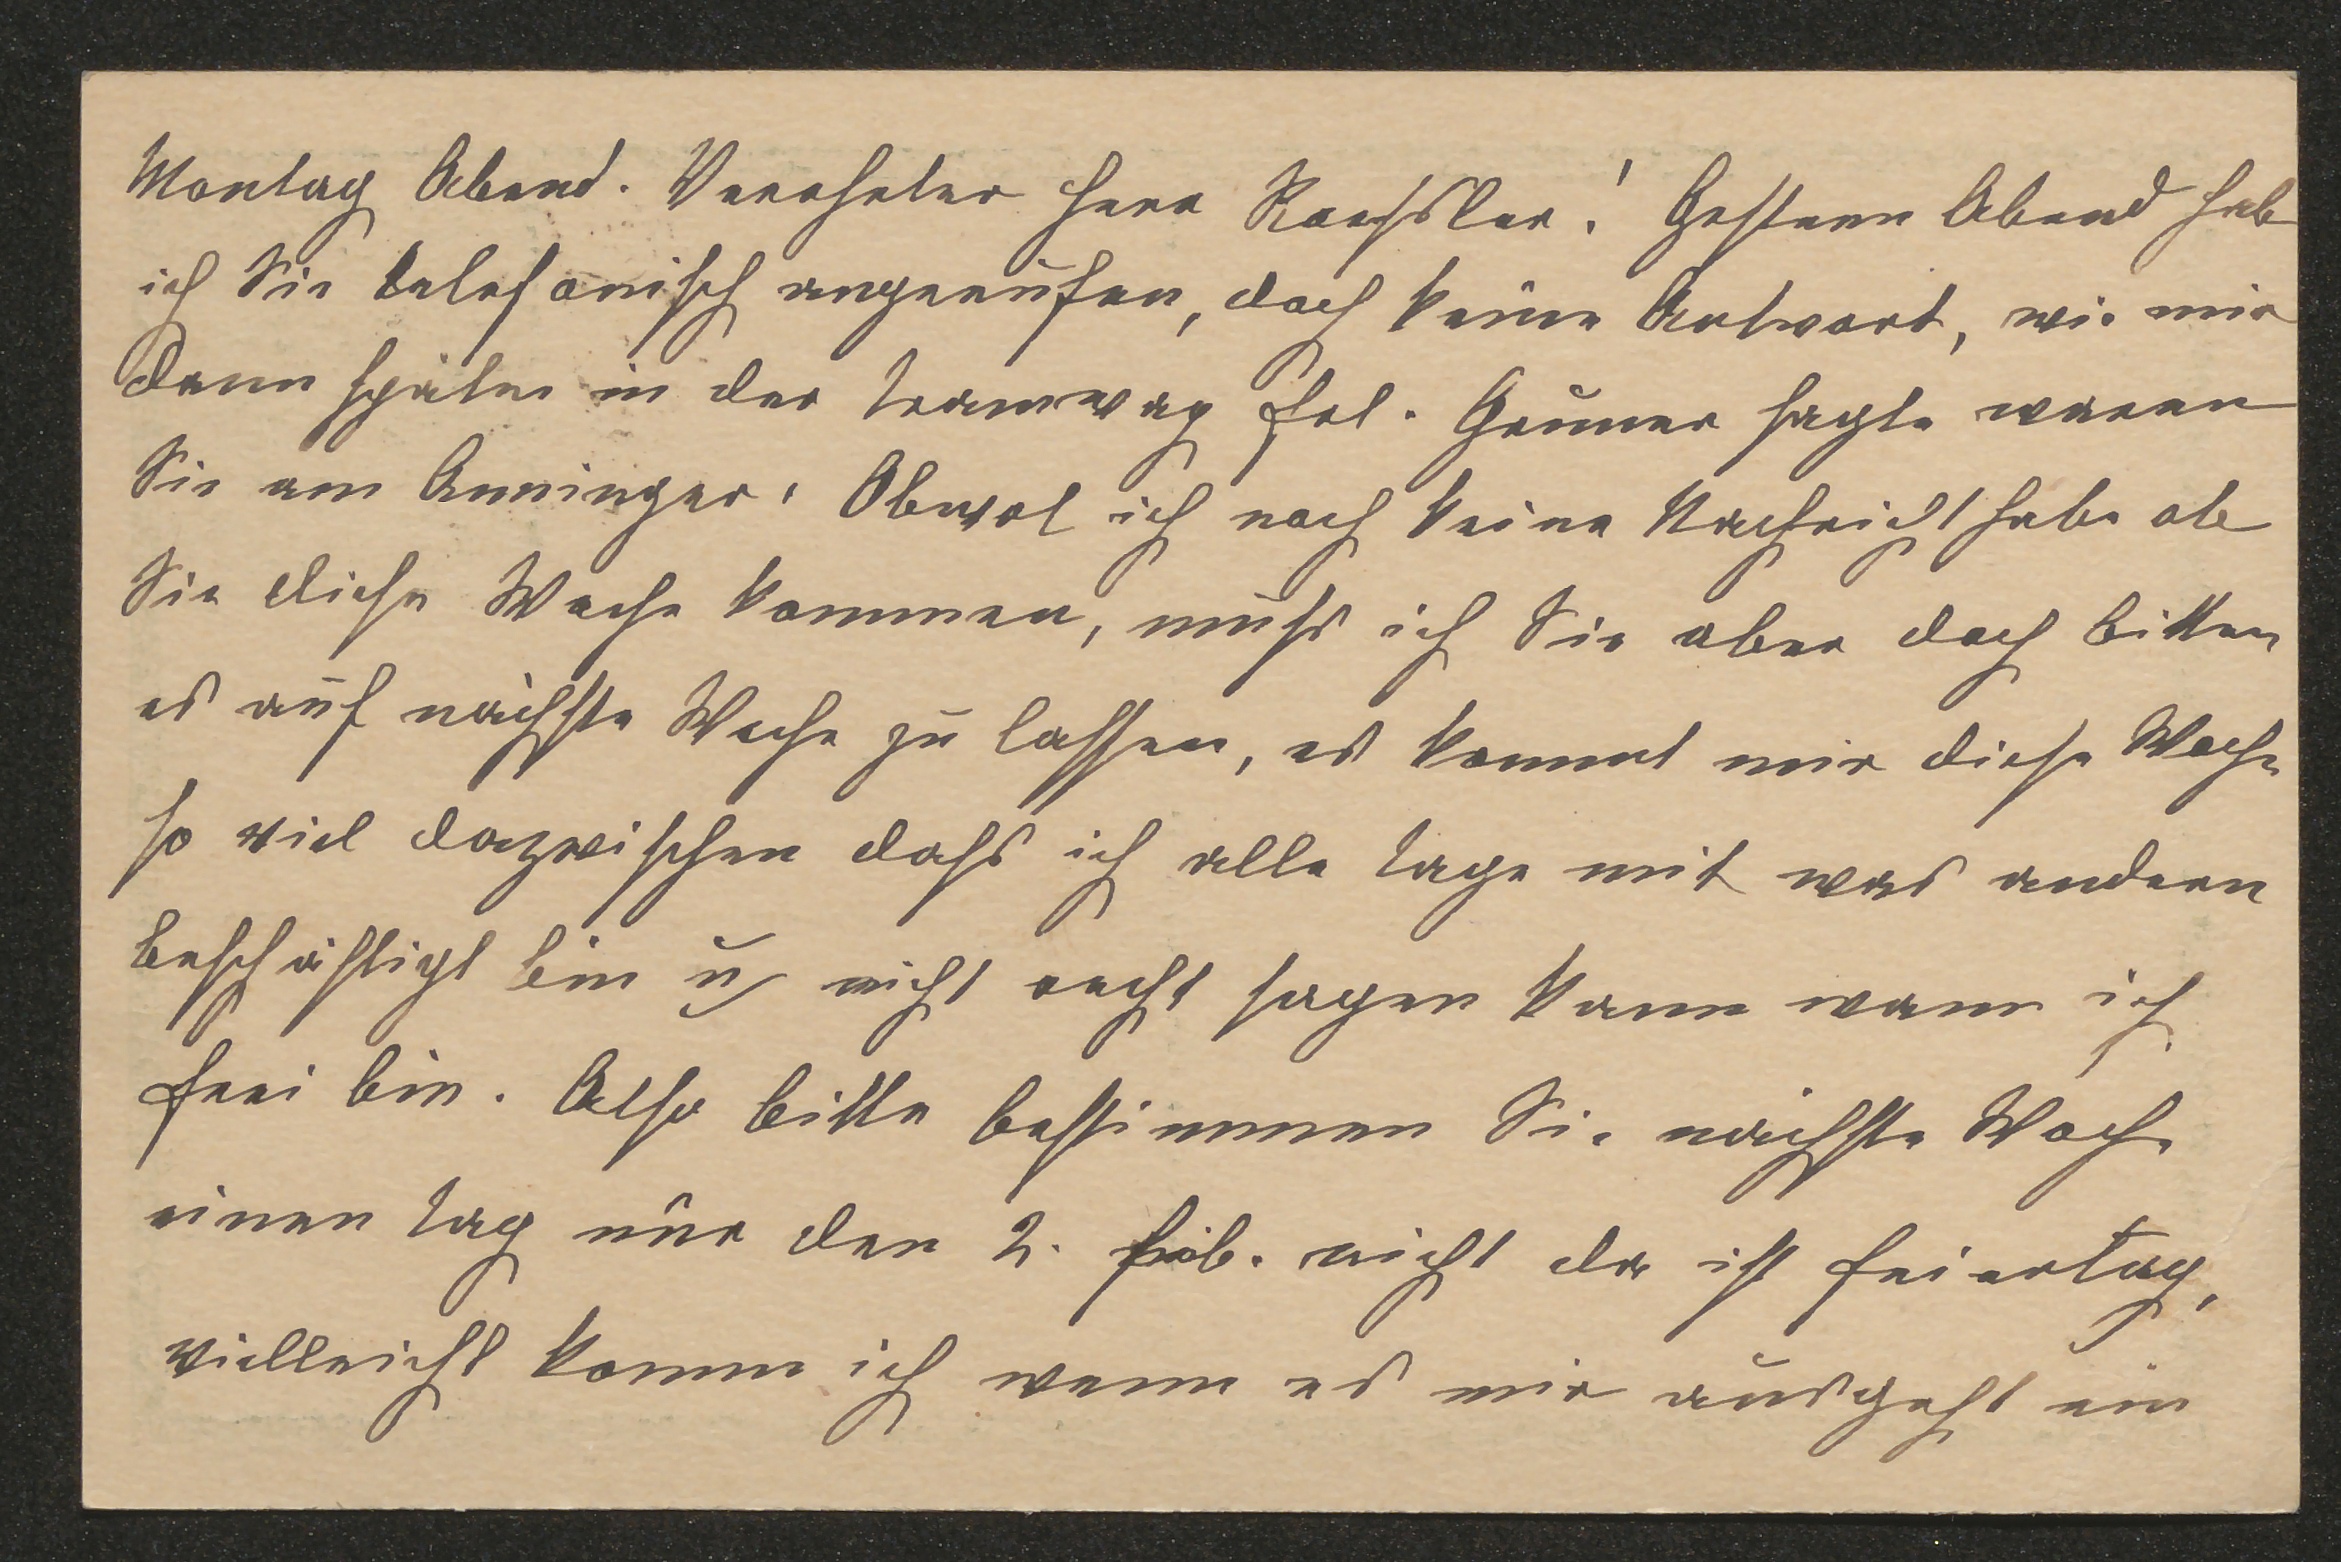 Montag Abend. Verehrter Herr Roessler! Gestern Abend hab
ich Sie telefonisch angerufen, doch keine Antwort, wie mir
dann später in der Tramway Frl. Gruner sagte waren
Sie am Anninger. Obwol ich noch keine Nachricht habe ob
Sie diese Woche kommen, muss ich Sie aber doch bitten
es auf nächste Woche zu lassen, es kommt mir diese Woche
so viel dazwischen dass ich alle Tage mit was andern
beschäftigt bin u nicht recht sagen kann wann ich
frei bin. Also bitte bestimmen Sie nächste Woche
einen Tag nur den 2. Feb. nicht da ist Feiertag,
vielleicht komm ich wenn es mir ausgeht ein